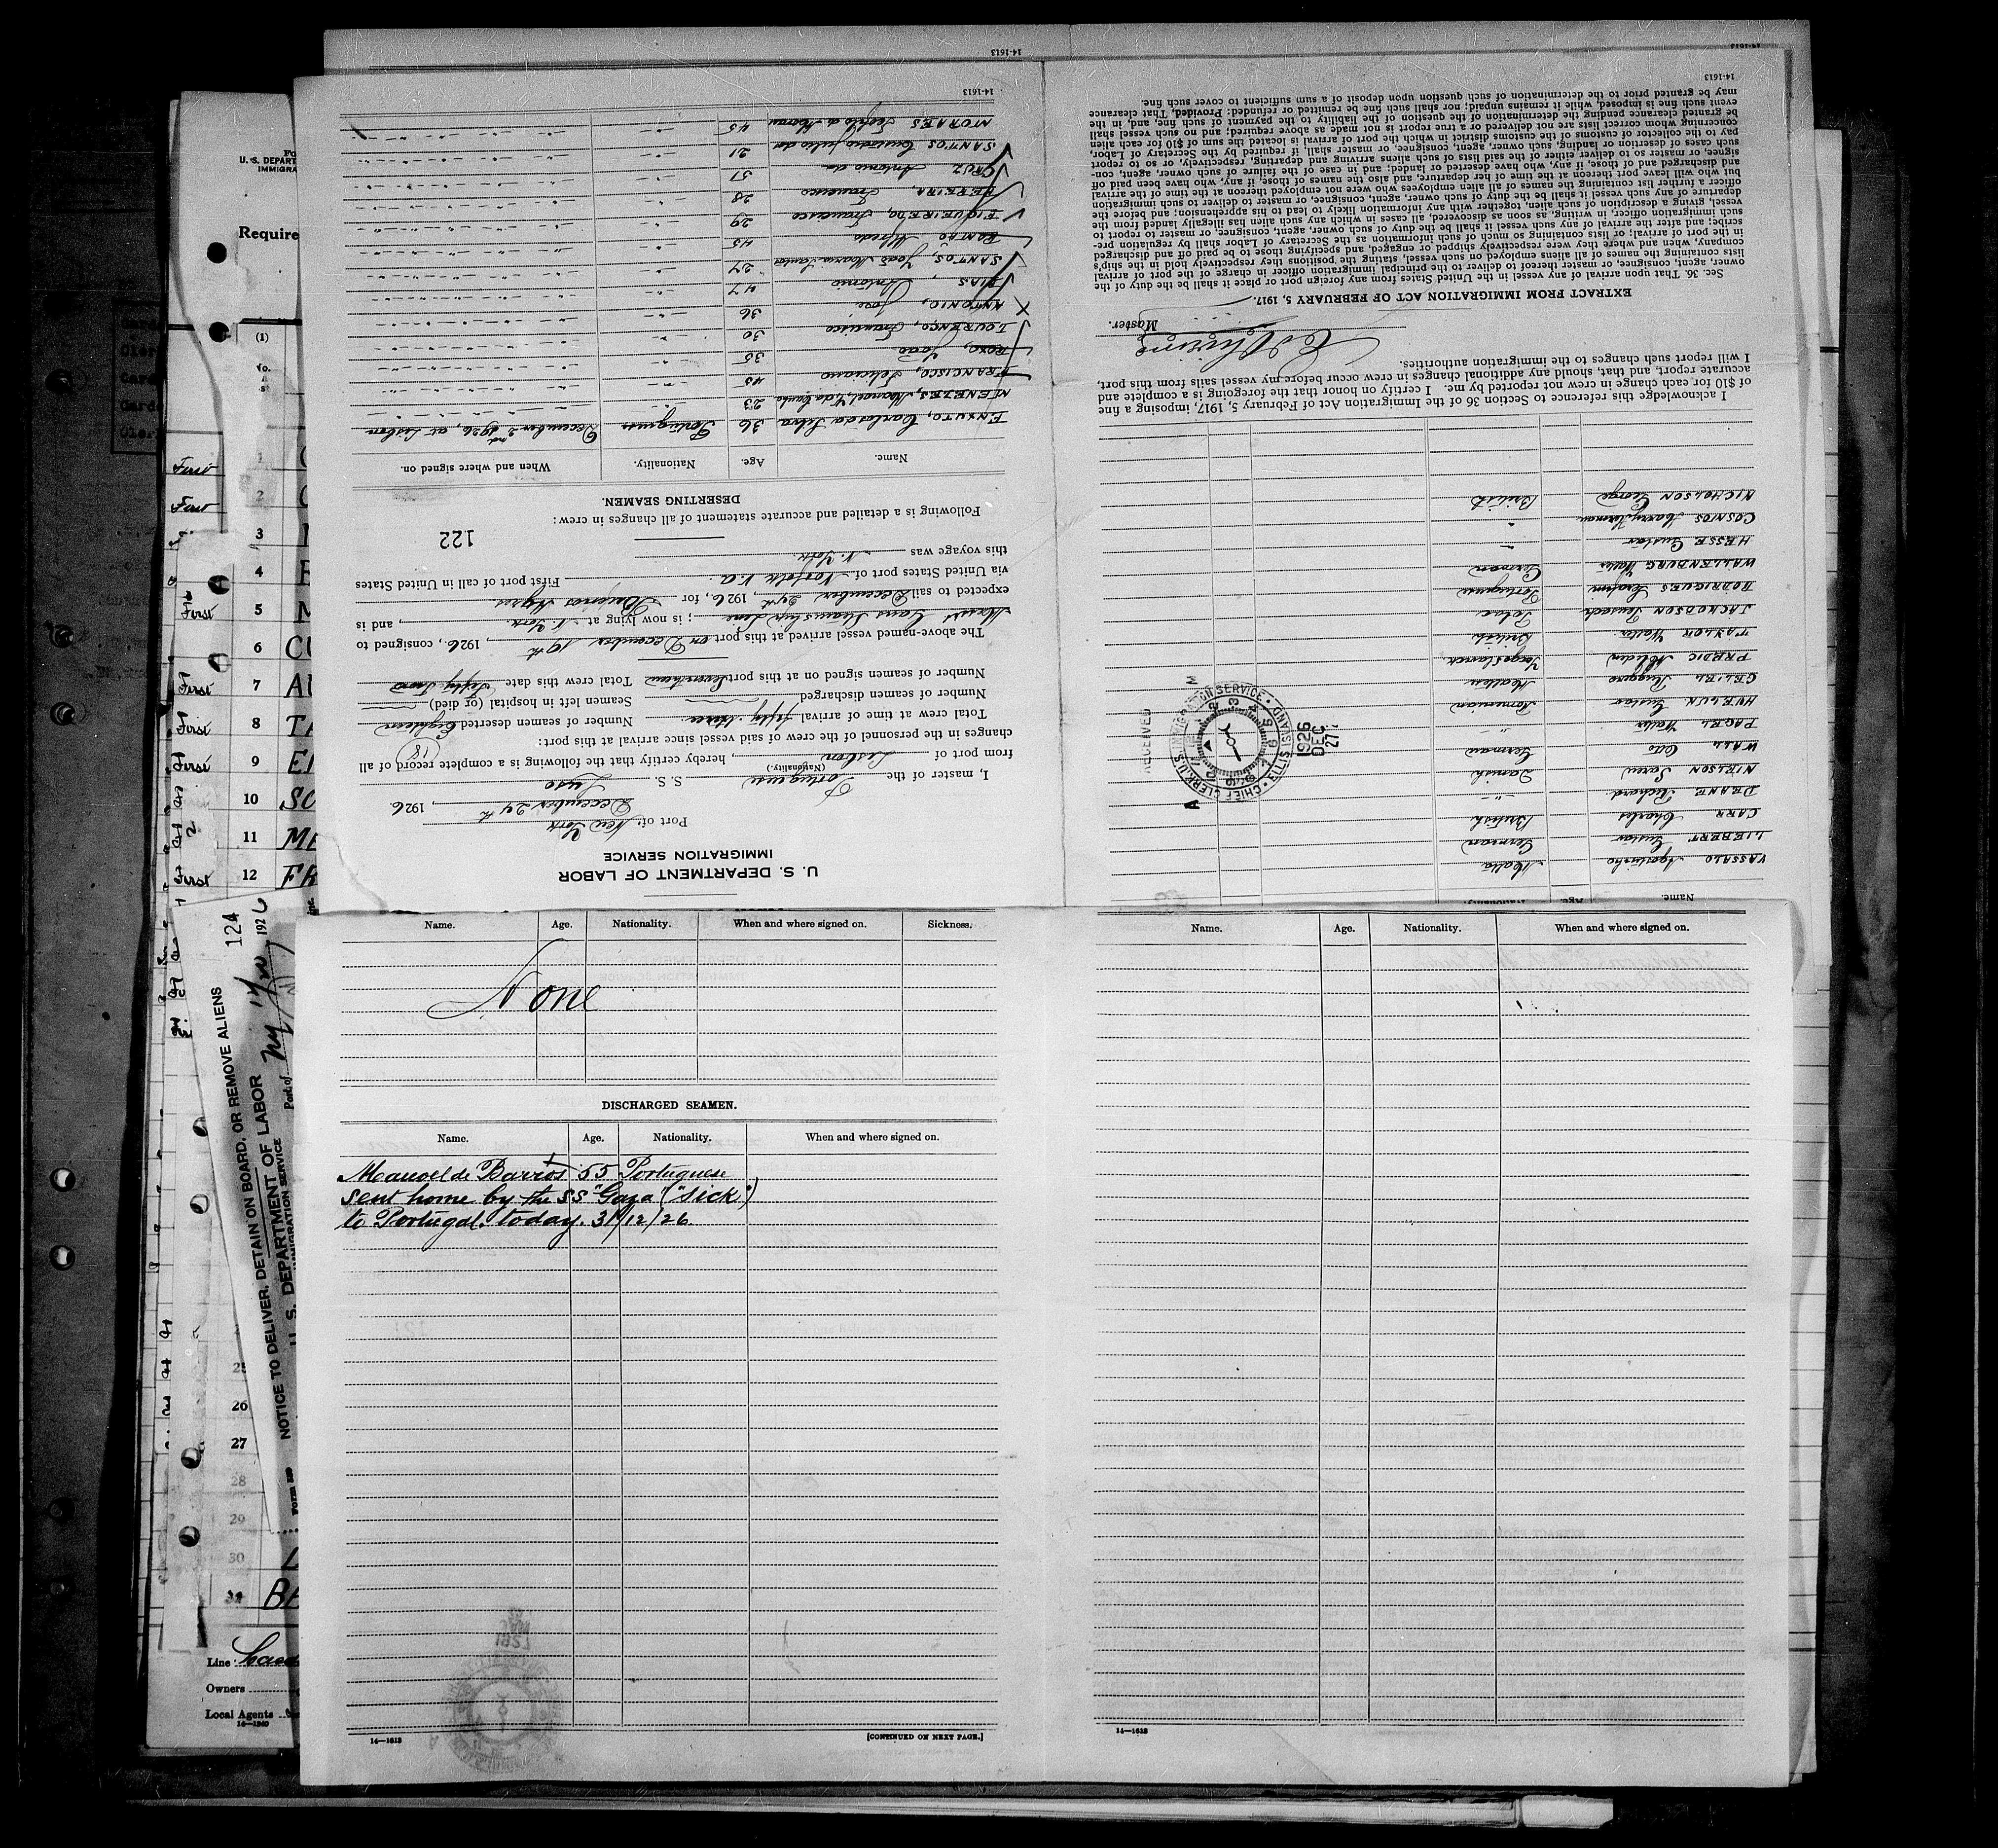 14-1613
U. S. DEPARTMENT OF LABOR
IMMIGRATION SERVICE
Port of New York
December 24th, 1926.
I, master of the Portuguese S. S.
(Nationality)
from port of Lisbon, hereby certify that the following is a complete record of all
changes in the personnel of the crew of said vessel since arrival at this port:
Total crew at time of arrival fifty three Number of seamen deserted Eighteen
(18)
Number of seamen discharged Seamen left in hospital (or died)
Number of seamen signed on at this port Seventeen Total crew this date fifty two
The above-named vessel arrived at this port on December 19th, 1926, consigned to
; is now lying at N. York, and is
expected to sail December, 1926, for Buenos Ayres
via United States port of Norfolk V.a. First port of call in United States
this voyage was N. York.
122
Following is a detailed and accurate statement of all changes in crew:
DESERTING SEAMEN.
Name. Age. Nationality. When and where signed on.
ENXUTO, Carlos da Silva 36 Portuguese December 2nd 1926, at Lisbon
MENEZES, Manoel, 23
FRANCISCO, Feliciano 45
ROXO, João 35
LOURENÇO, Francisco 30
ANTONIO, José 36
DIAS, Antonio 47
SANTOS, João Maria 27
ROMÃO Alfredo 45
FIGUEIREDO, Francisco 29
PEREIRA, Francisco 28
CRUZ Antonio da 51
SANTOS Julio dos 21
MORAES 45
14-1613
Name. Age. Nationality.
VASSALO Agostinho Malta
LIEBERT Gustav German
CARR Charles British
DEANE Richard "
NIELSON Soren Danish
WALL Otto German
PAGEL Walter "
HUELUN Gustav
CELIEL Ruggero
PREDIC
TAYLOR Walter British
JACKOBSON
RODRIGUES Serafim Portuguese
WALLENBURG Walter German
HESSE Gustav "
COSMOS Harry "
NICHOLSON George British
I acknowledge this reference to Section 36 of the Immigration Act of February 5, 1917, imposing a fine
of $10 for each change in crew not reported by me. I certify on honor that the foregoing is a complete and
accurate report, and that, should any additional changes in crew occur before my vessel sails from this port,
I will report such changes to the immigration authorities.
Master.
EXTRACT FROM IMMIGRATION ACT OF FEBRUARY 5, 1917.
Sec. 36. That upon arrival of any vessel in the United States from any foreign port or place it shall be the duty of the
owner, agent, consignee, or master thereof to deliver to the principal immigration officer in charge of the port of arrival
lists containing the names of all aliens employed on such vessel, stating the positions they respectively hold in the ship's
company, when and where they were respectively shipped or engaged, and specifying those to be paid off and discharged
in the port of arrival; or lists containing so much of such information as the Secretary of Labor shall by regulation pre-
scribe; and after the arrival of any such vessel it shall be the duty of such owner, agent, consignee, or master to report to
such immigration officer, in writing, as soon as discovered, all cases in which any such alien has illegally landed from the
vessel, giving a description of such alien, together with any information likely to lead to his apprehension; and before the
departure of any such vessel it shall be the duty of such owner, agent, consignee, or master to deliver to such immigration
officer a further list containing the names of all alien employees who were not employed thereon at the time of the arrival
but who will leave port thereon at the time of her departure, and also the names of those, if any, who have been paid off
and discharged and of those, if any, who have deserted or landed; and in case of the failure of such owner, agent, con-
signee, or master so to deliver either of the said lists of such aliens arriving and departing, respectively, or so to report
such cases of desertion or landing, such owner, agent, consignee, or master shall, if required by the Secretary of Labor,
pay to the collector of customs of the customs district in which the port of arrival is located the sum of $10 for each alien
concerning whom correct lists are not delivered or a true report is not made as above required; and no such vessel shall
be granted clearance pending the determination of the question of the liability to the payment of such fine, and, in the
event such fine is imposed, while it remains unpaid; nor shall such fine be remitted or refunded: Provided, That clearance
may be granted prior to the determination of such question upon deposit of a sum sufficient to cover such fine.
14-1613
RECEIVED
CHIEF CLERK, U.S. IMMIGRATION SERVICE · ELLIS ISLAND
1926
DEC
27
A M
Name. Age. Nationality. When and where signed on. Sickness.
None
DISCHARGED SEAMEN.
Name. Age. Nationality. When and where signed on.
Manoel de Barros 55 Portuguese
sent home by the SS "Gaza ("sick")
to Portugal. today. 31/12/26.
14—1613
[CONTINUED ON NEXT PAGE.]
Name. Age. Nationality. When and where signed on.
14—1613
U. S. DEPART
IMMIGRA
Require
(1)
First
First
1
2
3
4
First 5
6 CU
First 7 AU
First 8 TA
First 9
10 SC
11 ME
First 12 FR
124
NOTICE TO DELIVER, DETAIN ON BOARD, OR REMOVE ALIENS
U. S. DEPARTMENT OF LABOR
IMMIGRATION SERVICE
Port of NY 1926
25
26
27
28
29
30
BA
Line
Owners
Local Agents
14—1240